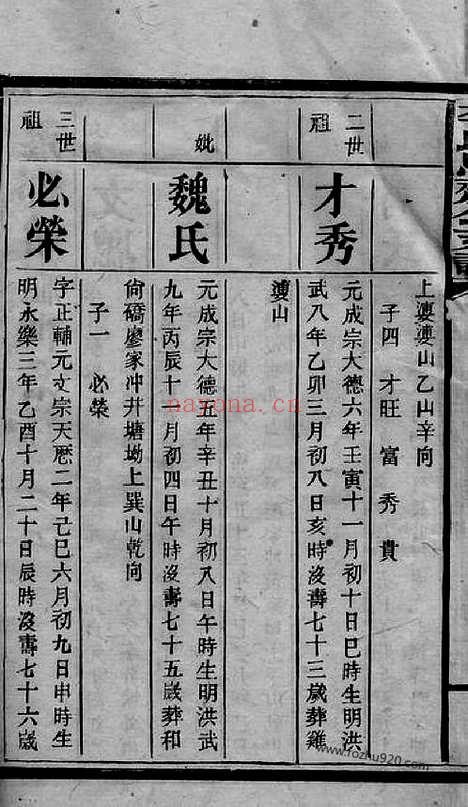 上婆婆山乙山辛向
子四 才旺 富 秀 貴
二世祖
才秀
元成宗大德六年壬寅十一月初十日巳時生明洪
武八年乙卯三月初八日亥時沒壽七十三歲葬雞
婆山
妣
魏氏
元成宗大德五年辛丑十月初八日午時生明洪武
九年丙辰十一月初四日午時沒壽七十五歲葬和
尙橋廖家冲井塘坳上巽山乾向
子一 必榮
三世祖
必榮
字正輔元文宗天厯二年己巳六月初九日申時生
明永樂三年乙酉十月二十日辰時沒壽七十六歲
nayona.cn
www.rozhu920.com